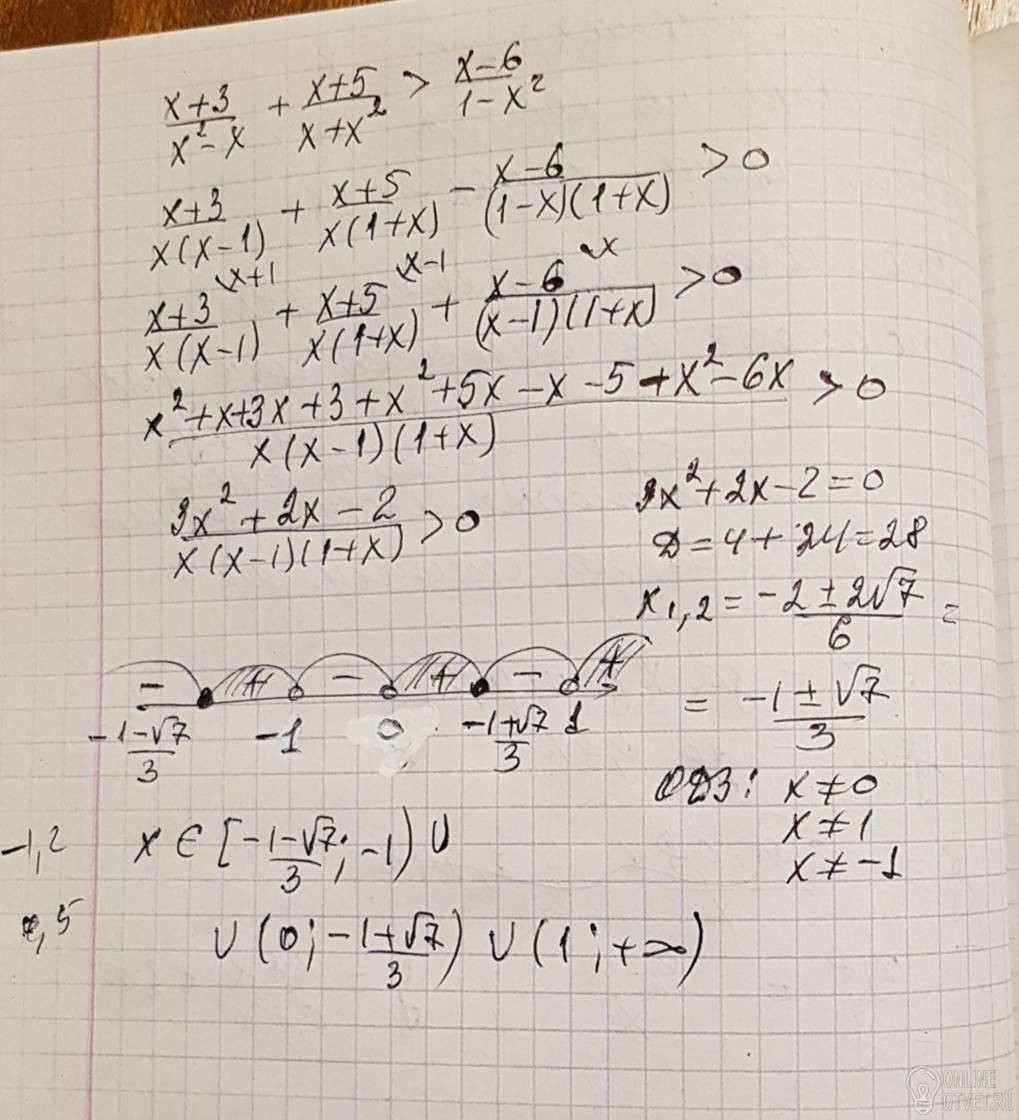 (x+3)/(x²-x) + (x+5)/(x+x²) > (x-6)/(1-x²)
(x+3)/(x(x-1)) + (x+5)/(x(1+x)) - (x-6)/((1-x)(1+x)) > 0
(x+3)/(x(x-1)) \x+1 + (x+5)/(x(1+x)) \x-1 + (x-6)/((x-1)(1+x)) \x > 0
(x²+x+3x+3+x²+5x-x-5+x²-6x)/(x(x-1)(1+x)) > 0
(3x²+2x-2)/(x(x-1)(1+x)) > 0
3x²+2x-2=0
D=4+24=28
x1,2 = (-2±2√7)/6 =
= (-1±√7)/3
- + - + - +
(-1-√7)/3 -1 0 (-1+√7)/3 1
ОДЗ: x≠0
x≠1
x≠-1
-1,2 x ∈ [(-1-√7)/3; -1) ∪
0,5 ∪ (0; (-1+√7)/3) ∪ (1; +∞)
ONLINE
OTVET.RU